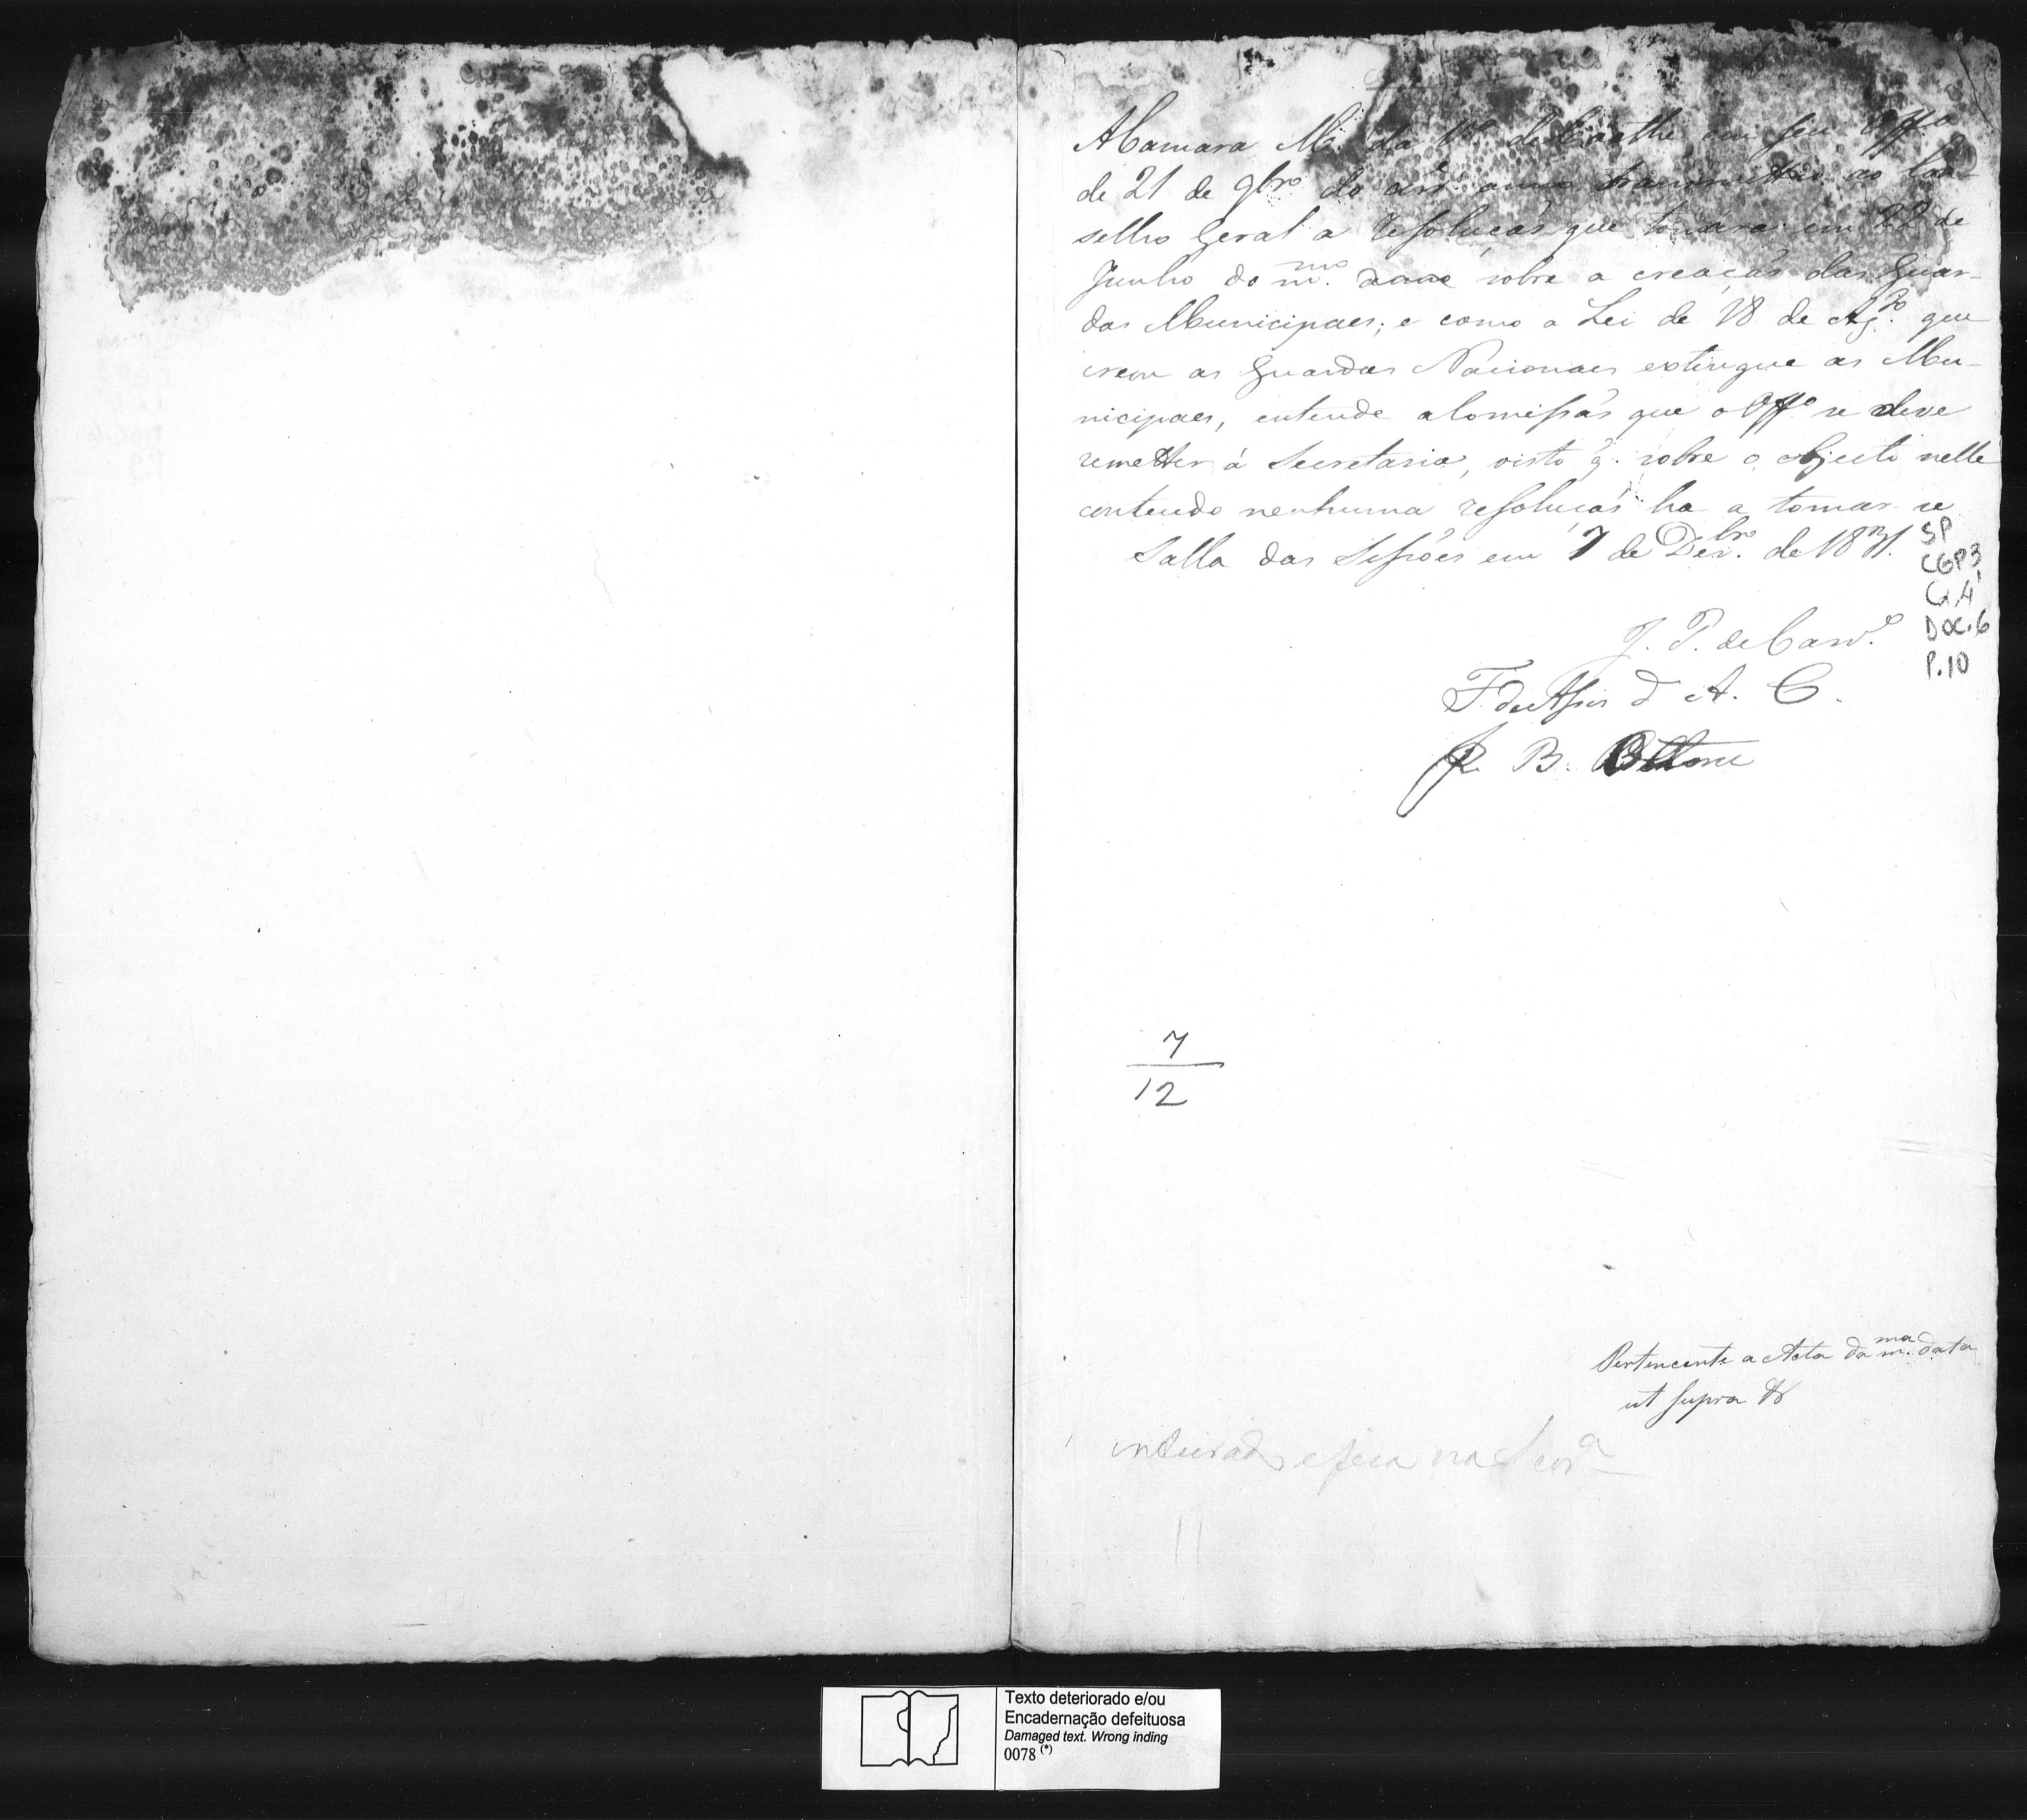 A Camara Ml da Va de Caethe em seu Offo
de 21 de 9bro do anno transmittio ao Con-
selho Geral a resolução que tomára em 22 de
Junho do mmo anno sobre a creação das Guar-
das Municipaes; e como a Lei de 18 de Agto que
creou as Guardas Nacionaes extingue as Mu-
nicipaes, entende a Comissão que o Offo se deve
remetter á Secretaria, visto q. sobre o objecto nelle
contendo nenhuma resolução ha a tomar se
Salla das Sessões em 7 de Dezbro de 1831.
SP
CGP3
Cx,4
DOC.6
P.10
J. P. de Carvo
F. de Assis d A. C.
B. Ottoni
7
12
Pertencente a Acta da mma data
ut supra
inteirado e fica na Secra
Texto deteriorado e/ou
Encadernação defeituosa
Damaged text. Wrong inding
0078 (*)